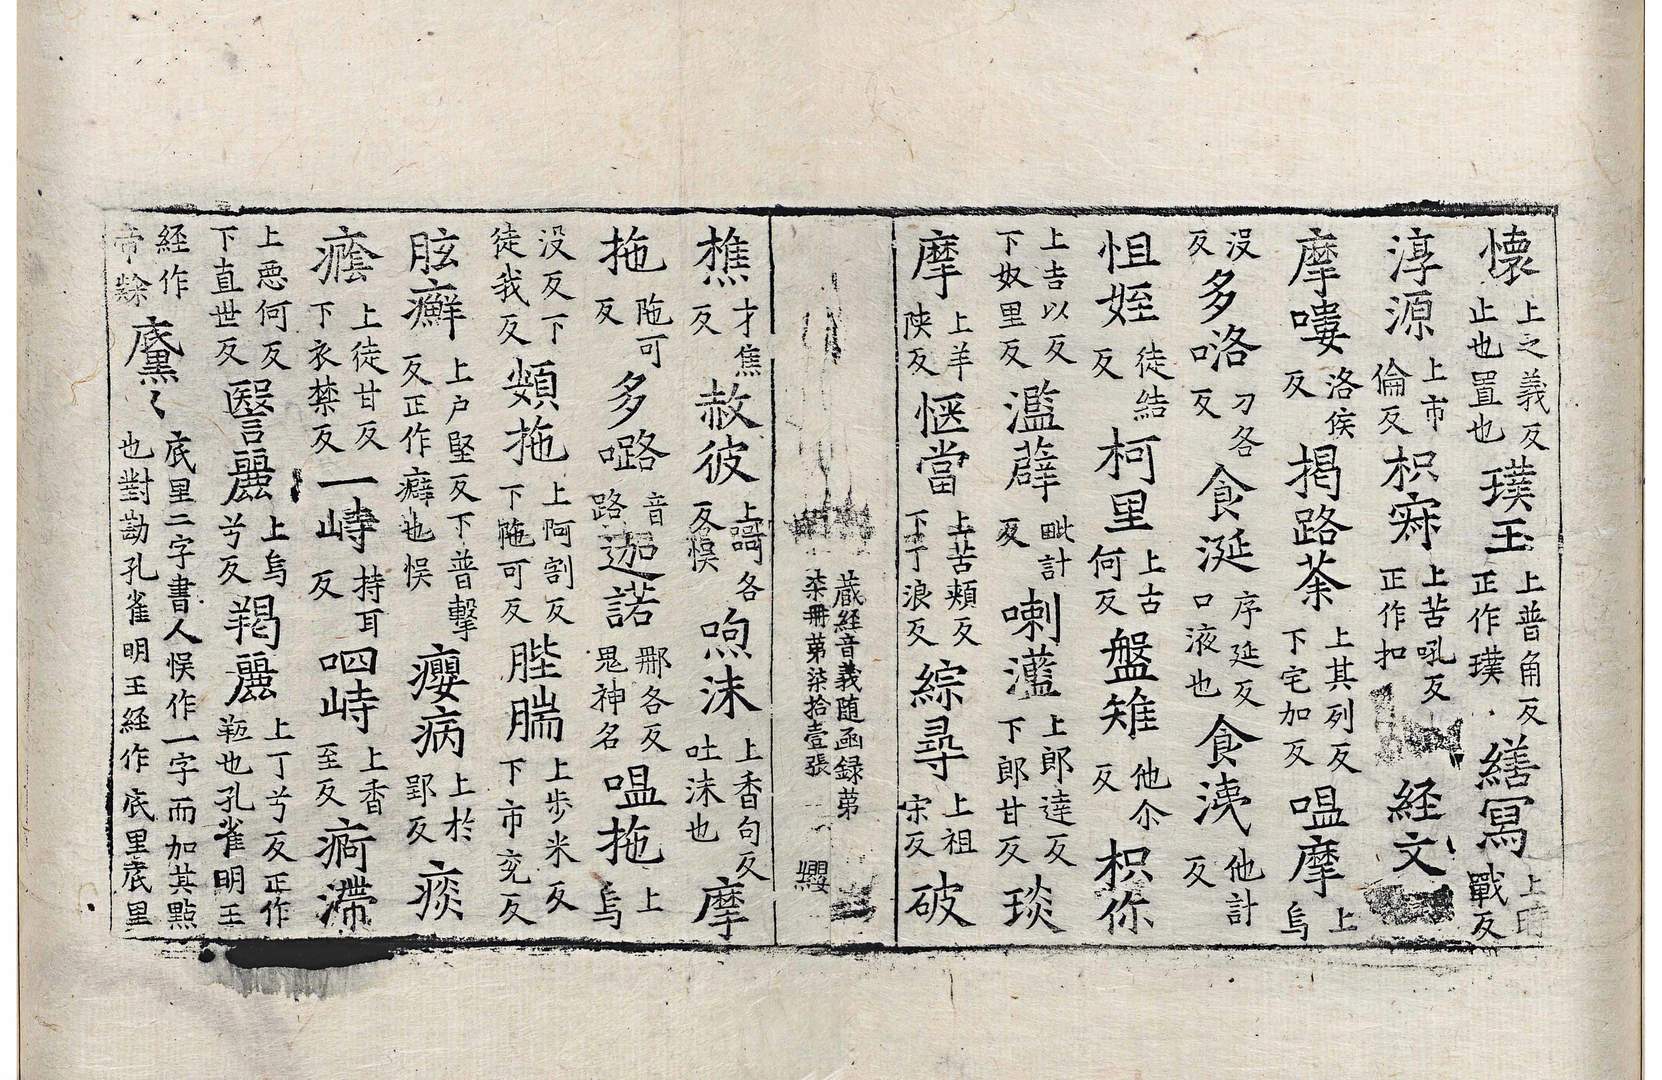 懷上之義反止也置也璞玉上普角反正作璞繕冩上時戰反
淳源上市倫反枳𡨥上苦吼反正作扣経文
摩嘍洛侯反揭路荼上其列反下宅加反嗢摩上烏
沒反多咯刁各反食涎序延反口液也食洟他計反
怚姪徒結反柯里上古何反盤雉他尒反枳你
上吉以反下奴里反濫薜毗計反喇灆上郎達反下郎甘反琰
摩上羊陕反愜當上苦頰反下丁浪反綜尋上祖宋反破
蔵経音義随函録苐
柒冊苐柒拾壹張
纓
樵才焦反赦彼上謌各反悮喣沫上香句反吐沫也摩
拖陁可反多𡀔音路迦諾那各反鬼神名嗢拖上烏
没反下徒我反頞拖上阿割反下陁可反䏶腨上步米反下市兖反
胘癬上户堅反下普擊反正作癖也悮癭病上於郢反痰
癊上徒甘反下衣禁反一𡺽持耳反呬𡺽上香至反痾滯
上惡何反下直世反譩麗上烏兮反羯麗上丁兮反正作羝也孔雀明王
経作帝𥻦㡳黑〻底里二字書人悮作一字而加其點也對勘孔雀明王経作底里底里